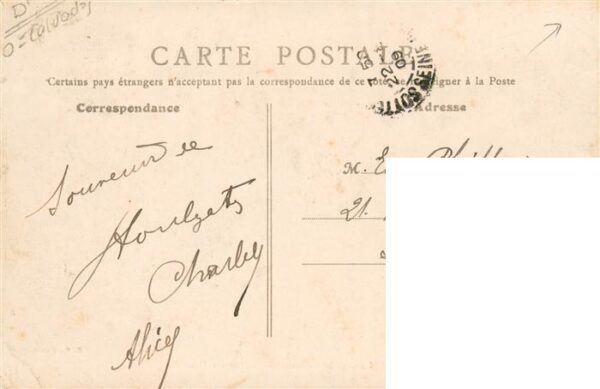 D
0 - Calvados
CARTE POSTALE
Certains pays étrangers n'acceptant pas la correspondance de ce côté se renseigner à la Poste
Correspondance
Adresse
7 50
22 - 7
09
SEINE
Souvenir de
Houlgate
Charley
Alice
M.
21.